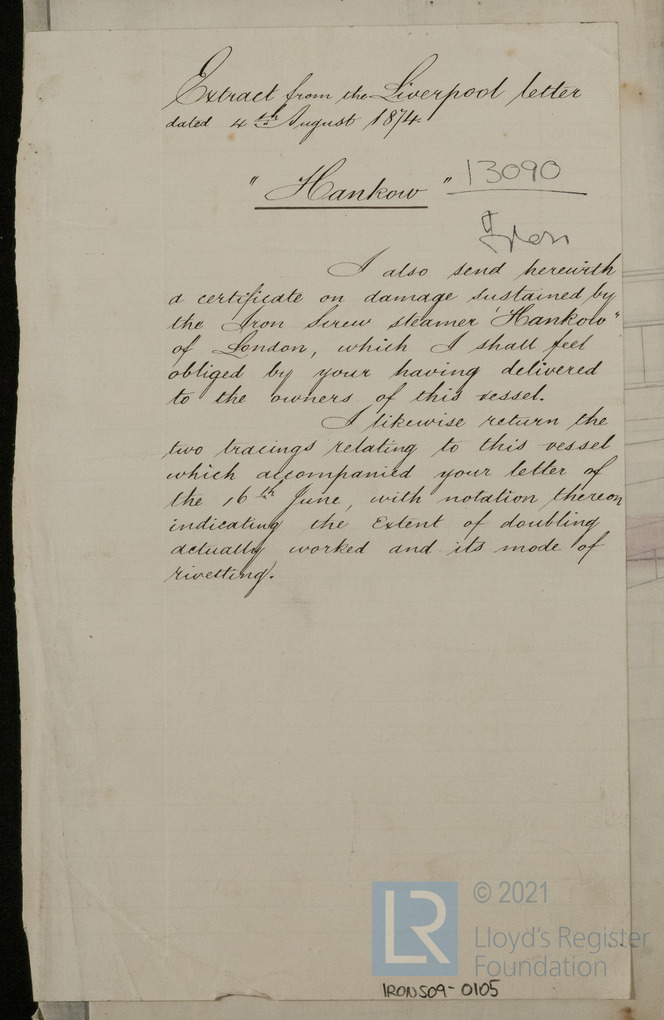 Extract from the Liverpool letter
dated 4th August 1874
"Hankow" 13090
Iron
I also send herewith
a certificate on damage sustained by
the Iron Screw steamer 'Hankow"
of London, which I shall feel
obliged by your having delivered
to the owners of this vessel.
I likewise return the
two tracings relating to this vessel
which accompanied your letter of
the 16th June, with notation thereon
indicating the Extent of doubling
actually worked and its mode of
rivetting.
LR
© 2021
Lloyd's Register
Foundation
IRONS09-0105